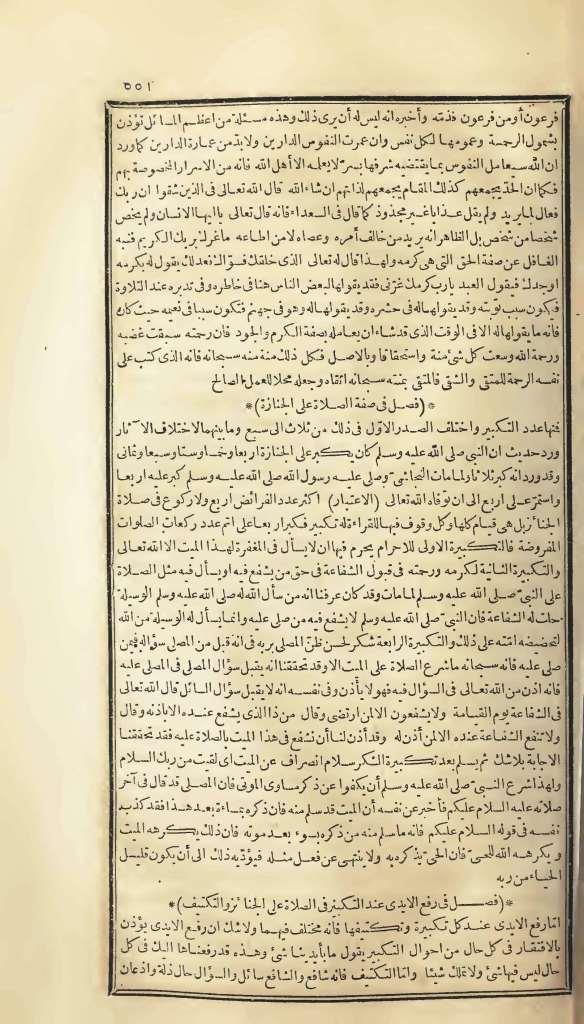 ٥٥١
فرعون أو من فرعون فذمته وأخبره انه ليس له أن يرى ذلك وهذه مسئلة من اعظم المسائل تؤذن
بشمول الرحمة وعمومها لكل نفس وان عمرت النفوس الدارين ولا بد من عمارة الدارين كما ورد
ان الله سيعامل النفوس بما يقتضيه شرفها بسر لا يعلمه الا أهل الله فانه من الاسرار المخصوصة بهم
فكما ان الحد يجمعهم كذلك المقام يجمعهم لذاتهم ان شاء الله قال الله تعالى في الذين شقوا ان ربك
فعال لما يريد ولم يقل عذابا غير مجذوذ كما قال في السعداء فانه قال تعالى يا ايها الانسان ولم يخص
شخصا من شخص بل الظاهر انه يريد من خالف أمره وعصاه لا من اطاعه ما غرك بربك الكريم فنبه
الغافل عن صفة الحق التي هي كرمه ولهذا قال له تعالى الذى خلقك فسواك فعدلك يقول له بكرمه
اوجدك فيقول العبد يارب كرمك غرنى فقد يقولها لبعض الناس هنا في خاطره وفي تدبره عند التلاوة
فيكون سبب توبته وقد يقولها له في حشره وقد يقولها له وهو في جهنم فتكون سببا في نعيمه حيث كان
فانه ما يقولها له الا في الوقت الذى قد شاء ان يعامله بصفة الكرم والجود فان رحمته سبقت غضبه
ورحمة الله وسعت كل شئ منة واستحقاقا وبالاصل فكل ذلك منة منه سبحانه فانه الذى كتب على
نفسه الرحمة للمتقى والمتقى فالمتقى بمنته سبحانه اتقاه وجعله محلا للعمل الصالح
*(فصل في صفة الصلاة على الجنازة)*
فمنها عدد التكبير واختلف الصدر الاوّل في ذلك من ثلاث الى سبع وما بينهما لاختلاف الآثار
ورد حديث ان النبى صلى الله عليه وسلم كان يكبر على الجنازة اربعا وخمسا وستا وسبعا وثمانى
وقد ورد انه كبر ثلاثا ولما مات النجاشى وصلى عليه رسول الله صلى الله عليه وسلم كبر عليه اربعا
واستمر على اربع الى ان توفاه الله تعالى (الاعتبار) اكثر عدد الفرائض اربع ولا ركوع في صلاة
الجنائز بل هي قيام كلها وكل وقوف فيها للقراءة له تكبير فكبر اربعا على اتم عدد ركعات الصلوات
المفروضة فالتكبيرة الاولى للاحرام يحرم فيها ان لا يسأل في المغفرة لهذا الميت الا الله تعالى
والتكبيرة الثانية لكرمه ورحمته في قبول الشفاعة في حق من يشفع فيه او يسأل فيه مثل الصلاة
على النبى صلى الله عليه وسلم لما مات وقد كان عرفنا انه من سأل الله له صلى الله عليه وسلم الوسيلة
حلت له الشفاعة فان النبى صلى الله عليه وسلم لا يشفع فيه من صلى عليه وانما يسأل له الوسيلة من الله
لتحضيضه امته على ذلك والتكبيرة الرابعة شكر لحسن ظن المصلى بربه في انه قبل من المصلى سؤاله فيمن
صلى عليه فانه سبحانه ما شرع الصلاة على الميت الا وقد تحققنا انه يقبل سؤال المصلى في المصلى عليه
فانه اذن من الله تعالى في السؤال فيه فهو لا يأذن وفي نفسه انه لا يقبل سؤال السائل قال الله تعالى
في الشفاعة يوم القيامة ولا يشفعون الا لمن ارتضى وقال من ذا الذى يشفع عنده الا باذنه وقال
ولا تنفع الشفاعة عنده الا لمن أذن له وقد أذن لنا أن نشفع في هذا الميت بالصلاة عليه فقد تحققنا
الاجابة بلا شك ثم يسلم بعد تكبيرة الشكر سلام انصراف عن الميت اى لقيت من ربك السلام
ولهذا شرع النبى صلى الله عليه وسلم أن يكفوا عن ذكر مساوى الموتى فان المصلى قد قال في آخر
صلاته عليه السلام عليكم فاخبر عن نفسه أن الميت قد سلم منه فان ذكره بمساءة بعد هذا فقد كذب
نفسه في قوله السلام عليكم فانه ما سلم منه من ذكره بسوء بعد موته فان ذلك يكرهه الميت
ويكرهه الله للحى فان الحى يذكره به ولا ينتهى عن فعل مثله فيؤديه ذلك الى أن يكون قليل
الحياء من ربه
*(فصل في رفع الايدى عند التكبير في الصلاة على الجنائز والتكتيف)*
اما رفع الايدى عند كل تكبيرة وتكتيفها فانه مختلف فيهما ولا شك ان رفع الايدى يؤذن
بالافتقار في كل حال من احوال التكبير يقول ما بأيدينا شئ وهذه قد رفعناها اليك في كل
حال ليس فيها شئ ولا تملك شيئا واما التكتيف فانه شافع والشافع سائل والسؤال حال ذلة واذعان